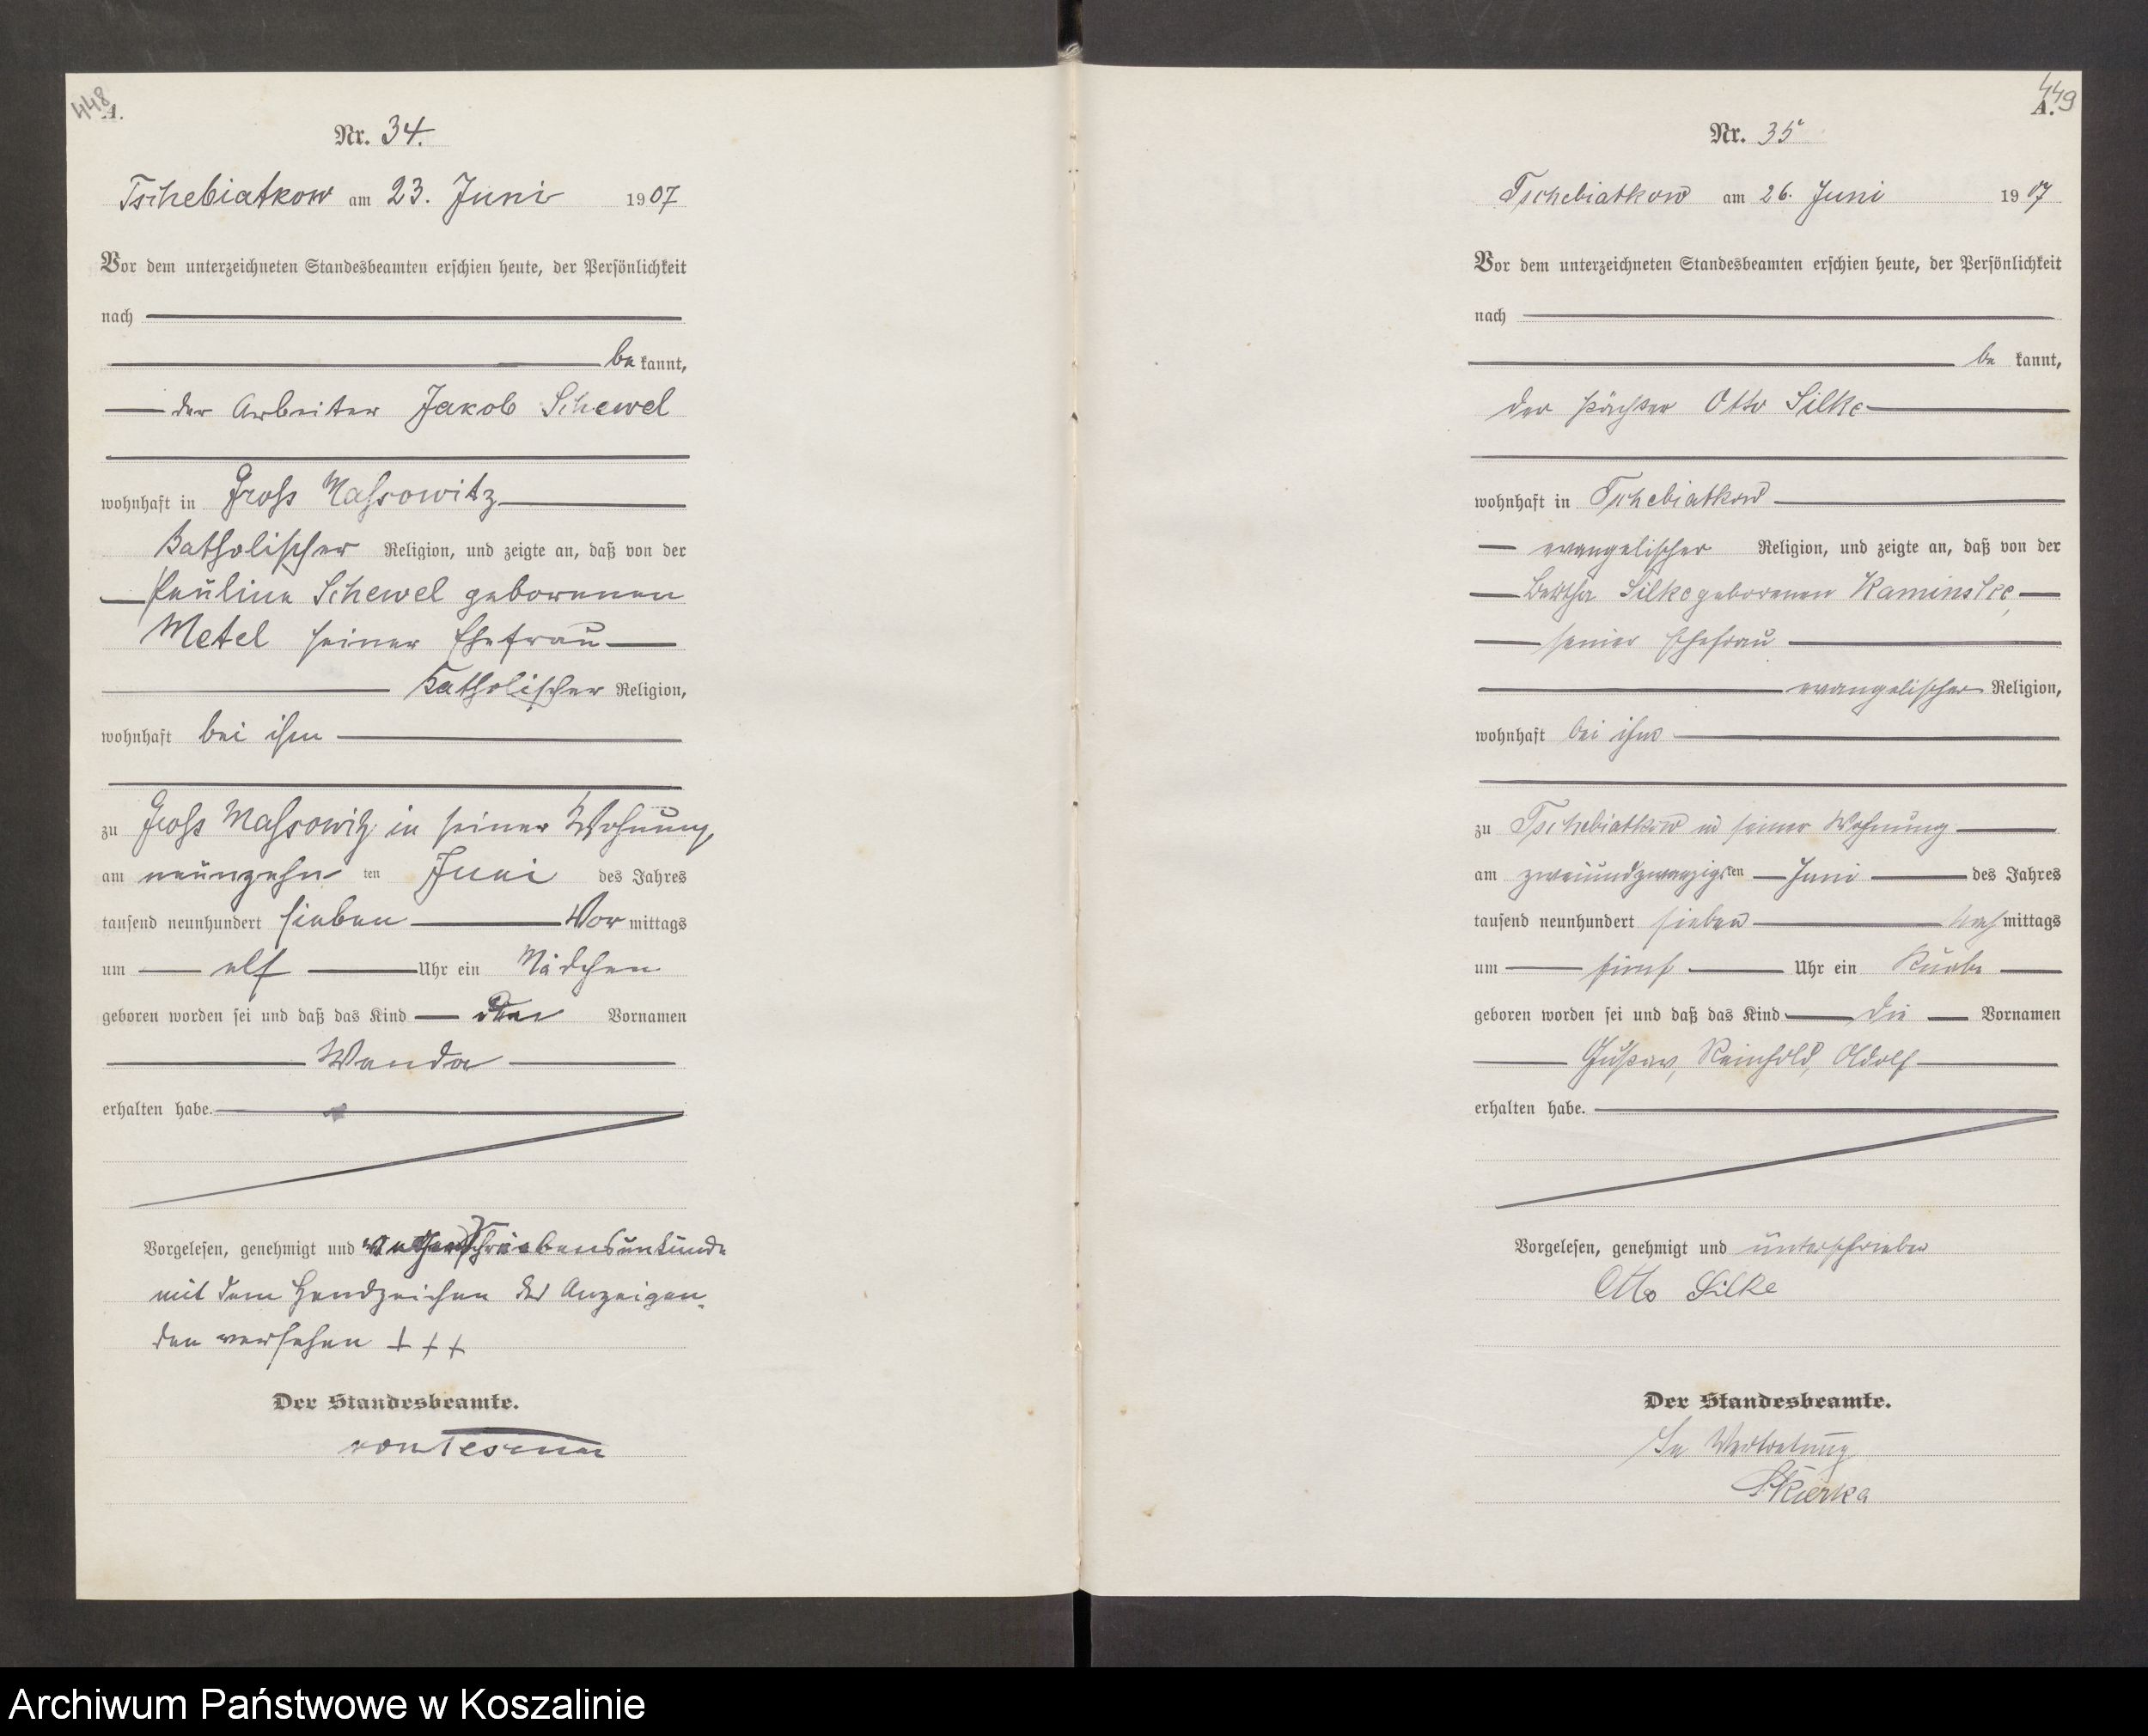 448
A.
Nr. 34.
Tschebiatkow am 23. Juni 1907
Vor dem unterzeichneten Standesbeamten erschien heute, der Persönlichkeit
nach
be kannt,
der Arbeiter Jakob Schewel
wohnhaft in Gross Massowitz
katholischer Religion, und zeigte an, daß von der
Pauline Schewel geborenen
Metel seiner Ehefrau
katholischer Religion,
wohnhaft bei ihm
zu Gross Massowitz in seiner Wohnung,
am neunzehn ten Juni des Jahres
tausend neunhundert sieben Vor mittags
um elf Uhr ein Mädchen
geboren worden sei und daß das Kind den Vornamen
Wanda
erhalten habe.
Vorgelesen, genehmigt und
mit dem Handzeichen des Anzeigen-
den versehen + + +
Der Standesbeamte.
von
449
A.
Nr. 35
Tschebiatkow am 26. Juni 1907
Vor dem unterzeichneten Standesbeamten erschien heute, der Persönlichkeit
nach
be kannt,
der Pächter Otto Silke
wohnhaft in Tschebiatkow
evangelischer Religion, und zeigte an, daß von der
Bertha Silke geborenen Kaminske,
seiner Ehefrau
evangelischer Religion,
wohnhaft bei ihm
zu Tschebiatkow in seiner Wohnung
am zweiundzwanzigsten Juni des Jahres
tausend neunhundert sieben Nach mittags
um fünf Uhr ein Knabe
geboren worden sei und daß das Kind die Vornamen
Gustav, Reinhold, Adolf
erhalten habe.
Vorgelesen, genehmigt und unterschrieben
Otto Silke
Der Standesbeamte.
In Vertretung
Skierka
Archiwum Państwowe w Koszalinie